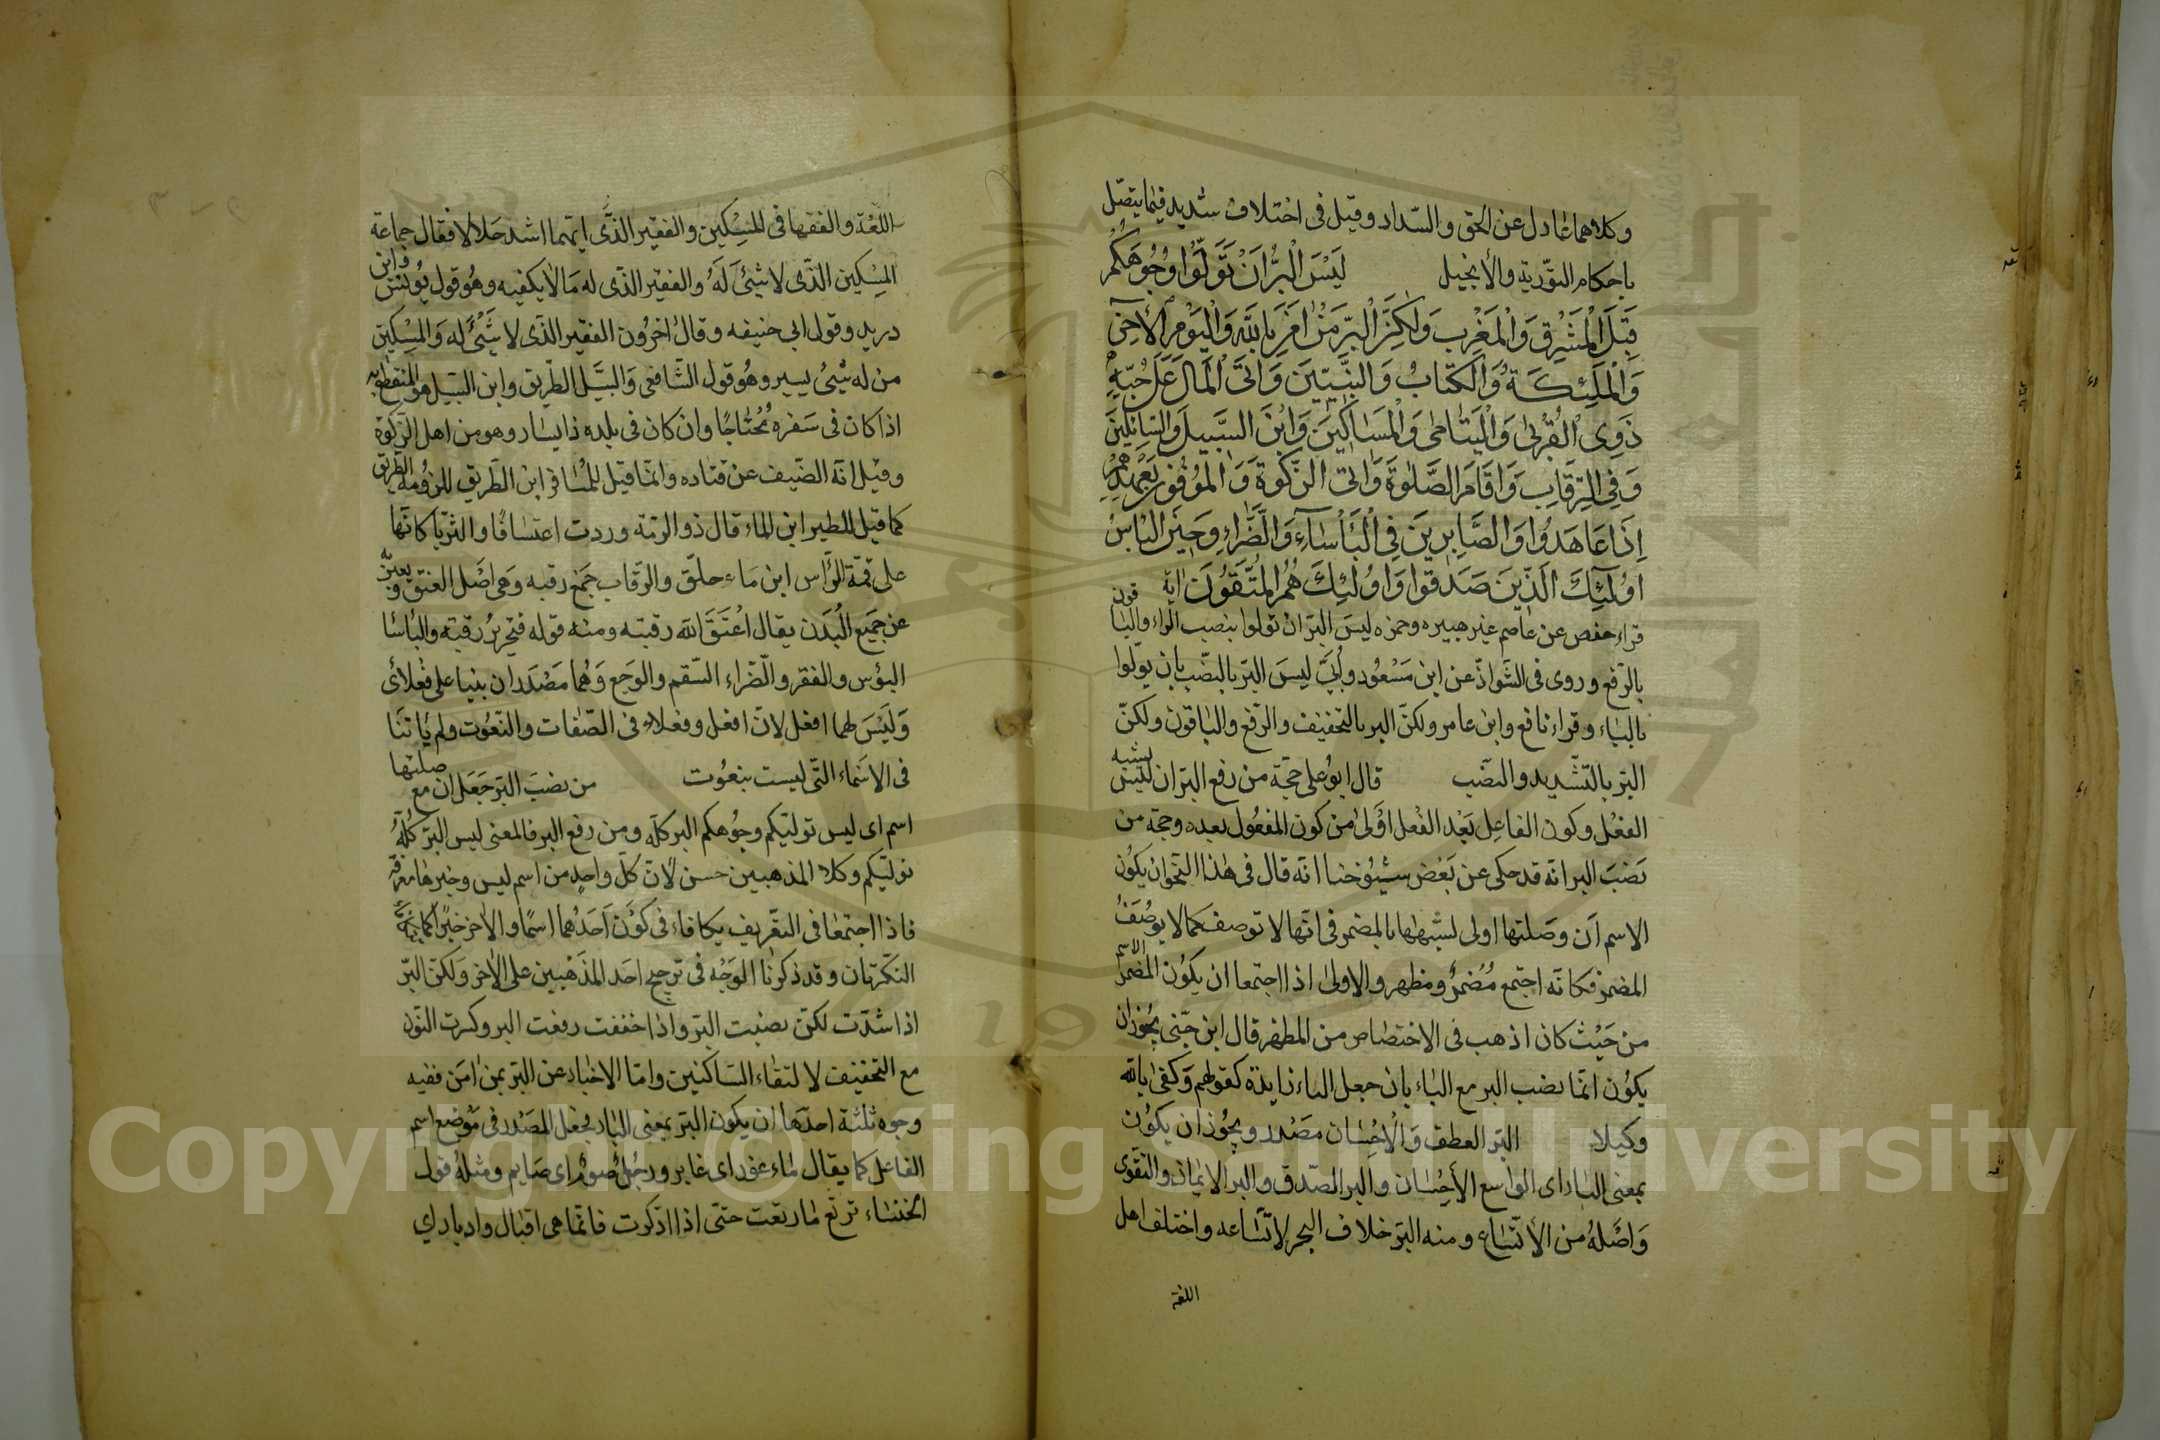 وكلاهما عادل عن الحق والسّداد وقيل فى اختلاف شديد فيما يتصّل
باحكام التّورية والأنجيل لَيْسَ الْبِرُّ اَنْ تَوَلُّوا وُجُوهَكُمْ
قِبَلَ الْمَشْرِقِ وَالْمَغْرِبِ وَلٰكِنَّ الْبِرَّ مَنْ اٰمَنَ بِاللّٰهِ وَالْيَوْمِ الْاٰخِرِ
وَالْمَلٰئِكَةِ وَالْكِتَابِ وَالنَّبِيّٖنَ وَاٰتَى الْمَالَ عَلٰى حُبِّهٖ
ذَوِى الْقُرْبٰى وَالْيَتَامٰى وَالْمَسَاكٖينَ وَابْنَ السَّبٖيلِ وَالسَّائِلٖينَ
وَفِى الرِّقَابِ وَاَقَامَ الصَّلٰوةَ وَاٰتَى الزَّكٰوةَ وَالْمُوفُونَ بِعَهْدِهِمْ
اِذَا عَاهَدُوا وَالصَّابِرٖينَ فِى الْبَأْسَاۤءِ وَالضَّرَّاۤءِ وَحٖينَ الْبَأْسِ
اُولٰۤئِكَ الَّذٖينَ صَدَقُوا وَاُولٰئِكَ هُمُ الْمُتَّقُونَ اٰية
قراء حفص عن عاصم غير هبيره وحمزه ليسَ البرّ ان تولوا بنصب الراء والباقون
بالرّفع وروى فى الشّواذّ عن ابن مَسْعُود وأُبَىّ ليسَ البرّ بالنّصب بان تولّوا
بالباء وقراء نافع وابن عامر ولكنّ البر بالتخفيف والرّفع والباقون ولكنّ
البرّ بالتّشديد والنصّب قال ابوُ على حجّة من رفع البرّ ان ليس يشبه
الفعْل وكون الفاعِل بَعْد الفعْل اوْلى من كون المفعُول بعده وحجة من
نصَبَ البر انّه قد حكى عن بَعْض شيُوخنا انّه قال فى هٰذا النّحو ان يكوُن
الاسم اَن وصَلتها اولى لشبهها بالمضمر فى انّها لا توصف كما لا يوصَفُ
المضمر فكانّه اجتمع مُضمرٌ ومظهر والاولىٰ اذا اجتمعا ان يكوُن المضمر الاسم
من حَيْث كان اذهب فى الاختصاص من المظهر قال ابن جّنى يجُوز ان
يكوُن انّما نصب البر مع الباء بان جعل الباء زايدة كقولهم وَكفىٰ باللّٰه
وكيلا البرّ العطف وَالْاِحْسَان مَصْدر ويجُوز ان يكوُن
بمعنى البارّ اى الواسع الأحِسَان والبر الصّدق والبر الايمان والتقوى
وَاصْلهُ من الأتّساع ومنه البرّ خلاف البحر لاتّسَاعه واختلف اهل
اللغة
اللّغة والفقها فى المسِكين والفقير الذّى ايّهما اشد حَالا فقال جماعة
المسِكين الذّى لا شيْئَ لَهُ والفقير الذّى له مَا لا يكفيه وهُو قول يوُنس وابن
دريد وقول ابى حنيفه وقالٰ اخرُون الفقير الذّى لا شَيْئ له وَالمِسْكين
من له شيْئ يسير وهُو قول الشّافعى وَالسَّبيل الطّريق وابن السّبيل هو المنقطع به
اذا كان فى سَفره مُحْتاجًا وان كان فى بلده ذا يسَار وهو من اهل الزّكوة
وقيل انّه الضّيف عن قتاده وانّما قيل للمُسَافر ابن الطّريق للزومه الطّريق
كما قيل للطير ابن الماء قال ذو الرّمة وردت اعتسافًا والثّريا كانّها
على قمّة الرّاس ابن مَاء حلّق والرّقاب جَمْع رقبه وَهى اصْل العنق ويعبرّ به
عن جَميع البُدَن يقال اعْتَقَ اللّه رقبته ومنه قوله فتحِريرُ رقبة والبأسا
البؤس والفقر والضّراء السّقم والوجَع وَهُما مَصْدَران بنيا على فعْلاء
وَليَسَ لهما افعل لانّ افعل وفعلاء فى الصّفات والنّعُوت ولم يأتنا
فى الاسَماء التّى ليست بنعوُت من نصَبَ البرّ جَعَل ان مع صلتها
اسم اى ليس توليّكم وجُوهكم البر كلّه ومن رفع البر فالمعنى ليس البرّ كُلّه
توليّكم وكلا المذهبين حسن لانّ كلّ واحدٍ من اسم ليس وخبرها معرفة
فاذا اجتمعا فى التعّريف تكافاء فى كوَن اَحَدهُما اسمًا والاٰخر خبرًا كما
النكّرتان وقد ذكرنا الوَجْه فى ترجيح احَد المذَهْبين على الاٰخر وَلكنّ البرّ
اذا شدّت لكنّ نصبت البرّ واذا خففت رفعت البر وكسرت النّون
مع التخفيف لالتقاء السّاكنين وامّا الاخبار عن البرّ بمن اٰمَن ففيه
وجوه ثلثة احدَها ان يكون البّر بمعنى البار فجعل المصْدر فى موْضع اسم
الفاعل كما يقال مَاء غور اى غاير ورجُل صَومْ اى صَايم ومثلهُ قول
الخنساء ترتع مَا رتعت حتى اذا ادّكرت فانّما هى اقبال وادبار اي
Copyright © King Saud University